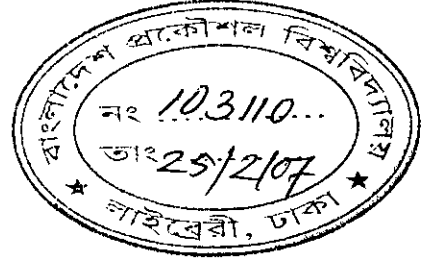 বাংলাদেশ প্রকৌশল বিশ্ববিদ্যালয়
নং 103110
তাং 25/2/07
★ লাইব্রেরী, ঢাকা ★